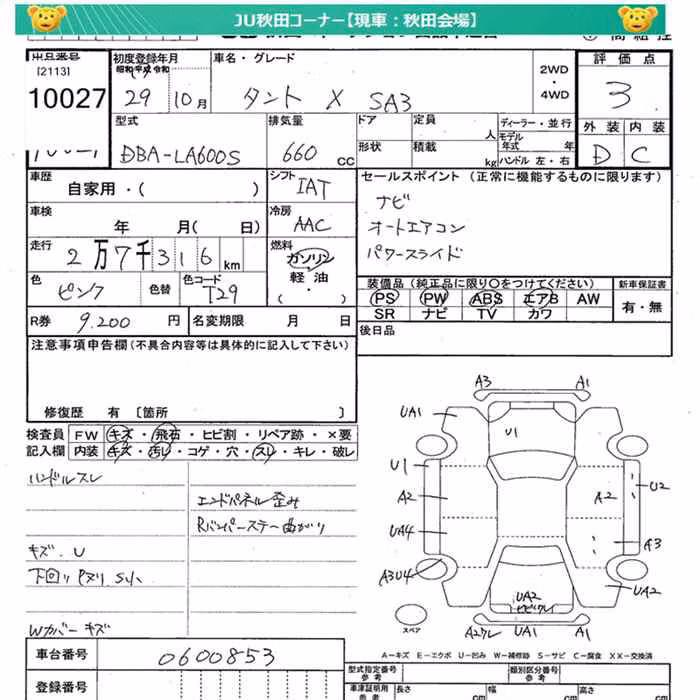 JU秋田コーナー【現車：秋田会場】
出品番号
[2113]
10027
初度登録年月
昭和 平成 令和
29 10月
車名・グレード
タント X SA3
2WD
・
4WD
評価点
3
外装 内装
D C
型式
DBA-LA600S
排気量
660 CC
ドア
形状
定員 人
積載 kg
ディーラー・並行
モデル年式 年
ハンドル 左・右
車歴
自家用・( )
シフト
IAT
セールスポイント (正常に機能するものに限ります)
ナビ
オートエアコン
パワースライド
車検
年 月( 日)
冷房
AAC
走行
2万7千316km
燃料
ガソリン
軽油
・( )
色
ピンク
色替
色コード
T29
装備品 (純正品に限り〇をつけてください)
新車保証書
PS PW ABS エアB AW
SR ナビ TV カワ
有・無
R券 9,200 円
名変期限 月 日
後日品
注意事項申告欄(不具合内容等は具体的に記入して下さい)
修復歴 有 [箇所 ]
検査員
記入欄
FW キズ・飛石・ヒビ割・リペア跡・×要
内装 キズ・汚レ・コゲ・穴・スレ・キレ・破レ
ハンドルスレ
エンドパネル歪み
Rバンパーステー曲がり
キズ、U
下回り Pヌリ、S小
Wカバーキズ
A3 A1
UA1
U1
U1
A2
A2
U2
UA4
A3
A3U4
UA2
UA2
スペア
A2ワレ UA1 A1
A-キズ E-エクボ U-凹み W-補修跡 S-サビ C-腐食 XX-交換済
車台番号
0600853
型式指定番号
参考
類別区分番号
参考
登録番号
車庫証明用
参考
長さ cm
幅 cm
高さ cm